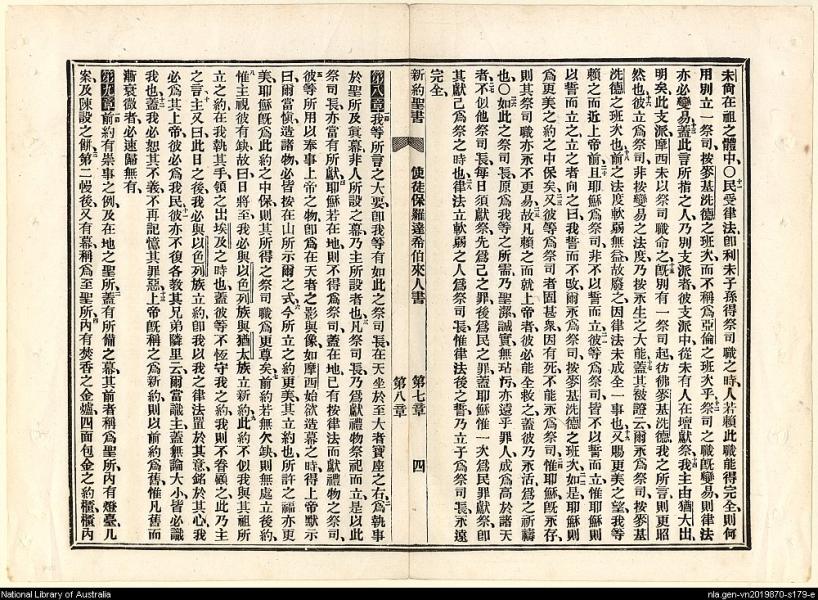 未尙在祖之體中、〇民受律法卽利未子孫得祭司職之時、人若賴此職能得完全、則何
用別立一祭司、按麥基洗德之班次、而不稱爲亞倫之班次乎、祭司之職旣變易、則律法
亦必變易、蓋此言所指之人、乃別支派者、彼支派中、從未有人在壇獻祭、我主由猶大出、
明矣、此支派摩西未以祭司職命之、旣別有一祭司起、彷彿麥基洗德、我之所言則更昭
然也、彼立爲祭司、非按變易之法度、乃按永生之大能、蓋其被證云、爾永爲祭司、按麥基
洗德之班次也、前之法度軟弱無益故廢之、因律法未成全一事也、又賜更美之望、我等
賴之而近上帝前、且耶穌爲祭司、非不以誓而立、彼等爲祭司、皆不以誓而立、惟耶穌則
以誓而立、立之者向之曰、我誓而不改、爾永爲祭司、按麥基洗德之班次、如是耶穌則
爲更美之約之中保矣、又彼等爲祭司者固甚衆、因有死不能永爲祭司、惟耶穌旣永存、
則其祭司職亦永不更易、故凡賴之而就上帝者、彼必能全救之、蓋彼乃永活爲之祈禱
也、〇如此之祭司長、原爲我等之所需、乃聖潔、誠實、無玷污、亦遠乎罪人、成爲高於諸天
者、不似他祭司長、每日須獻祭、先爲己之罪、後爲民之罪、蓋耶穌惟一次爲民罪獻祭、卽
其獻己爲祭之時也、律法立軟弱之人爲祭司長、惟律法後之誓、乃立子爲祭司長、永遠
完全、
新約聖書 使徒保羅達希伯來人書 第七章 四
第八章
第八章 我等所言之大要、卽我等有如此之祭司長、在天坐於至大者寶座之右、爲執事
於聖所及眞幕、非人所設之幕、乃主所設者也、凡祭司長、乃爲獻禮物祭祀而立、是以此
祭司長、亦當有所獻、耶穌若在地、則不得爲祭司、蓋在地已有按律法而獻禮物之祭司、
彼等所用以奉事上帝之物、卽爲在天者之影與像、如摩西始欲造幕之時、得上帝默示
曰、爾當愼造諸物、必皆按在山所示爾之式、今所立之約更美、其立約也、所許之福亦更
美、耶穌旣爲此約之中保、則其所得之祭司職爲更尊矣、前約若無欠缺、則無處立後約、
惟主視彼有缺、故曰、日將至、我必與以色列族與猶太族立新約、此約不似我與其祖所
立之約、在我執其手領之出埃及之時也、蓋彼等不恆守我之約、我則不眷顧之、此乃主
之言、主又曰、此日之後、我必與以色列族立約、卽我以我之律法置於其意、銘於其心、我
必爲其上帝、彼必爲我民、彼亦不復各敎其兄弟隣里云、爾當識主、蓋無論大小皆必識
我也、蓋我必恕其不義、不再記憶其罪惡、上帝旣稱之爲新約、則以前約爲舊、惟凡舊而
漸衰微者、必速歸無有、
第九章 前約有崇事之例、及在地之聖所、蓋有所備之幕、其前者稱爲聖所、內有燈臺、几
案、及陳設之餠、第二幔後、又有幕稱爲至聖所、內有焚香之金爐、四面包金之約櫃、櫃內
National Library of Australia
nla.gen-vn2019870-s179-e